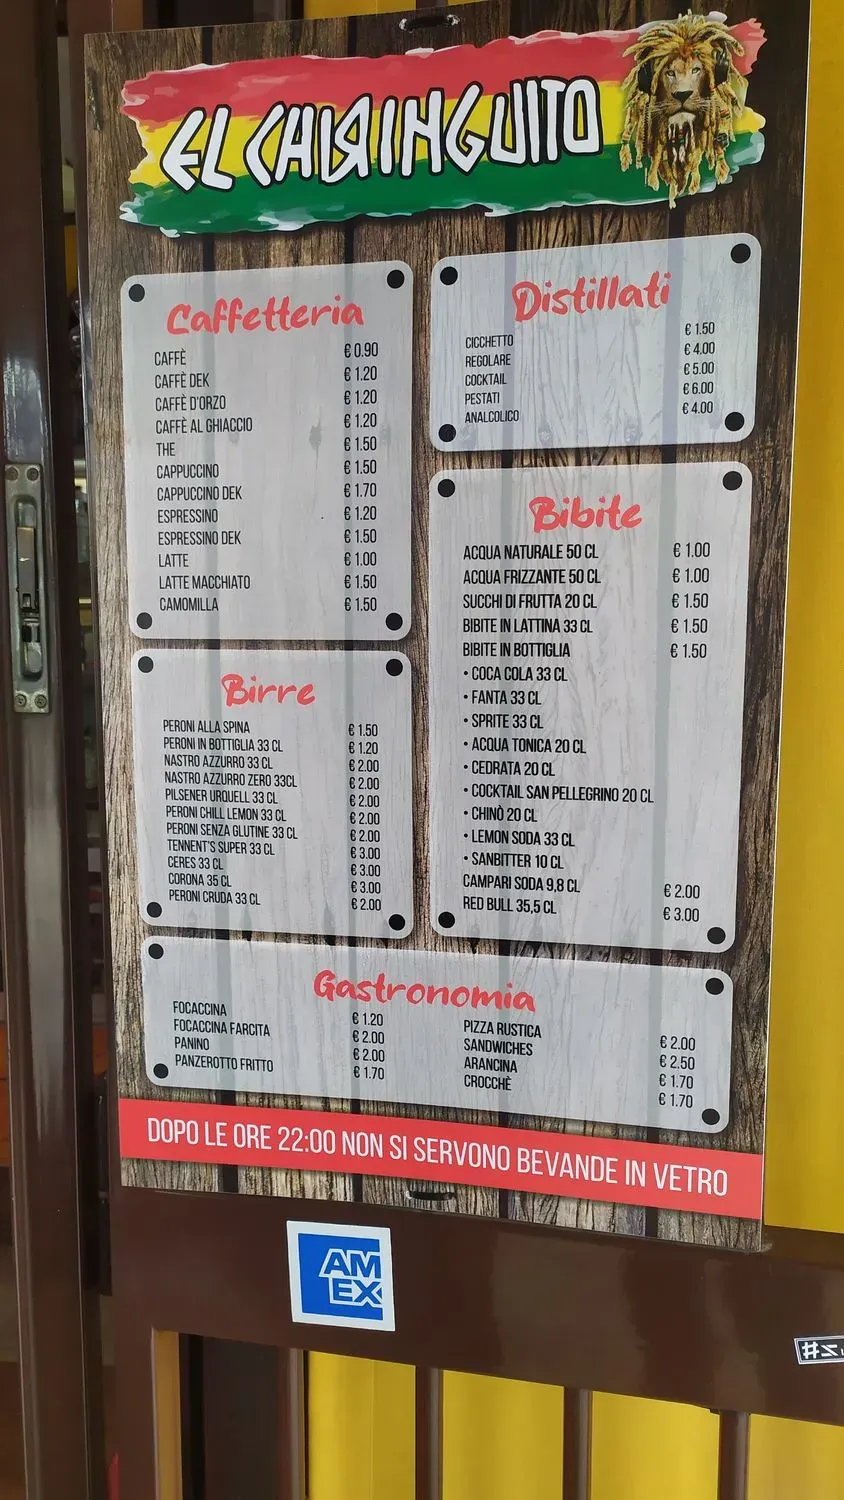 EL CHIRINGUITO
Caffetteria
CAFFÈ € 0.90
CAFFÈ DEK € 1.20
CAFFÈ D'ORZO € 1.20
CAFFÈ AL GHIACCIO € 1.20
THE € 1.50
CAPPUCCINO € 1.50
CAPPUCCINO DEK € 1.70
ESPRESSINO € 1.20
ESPRESSINO DEK € 1.50
LATTE € 1.00
LATTE MACCHIATO € 1.50
CAMOMILLA € 1.50
Birre
PERONI ALLA SPINA € 1.50
PERONI IN BOTTIGLIA 33 CL € 1.20
NASTRO AZZURRO 33 CL € 2.00
NASTRO AZZURRO ZERO 33CL € 2.00
PILSENER URQUELL 33 CL € 2.00
PERONI CHILL LEMON 33 CL € 2.00
PERONI SENZA GLUTINE 33 CL € 2.00
TENNENT'S SUPER 33 CL € 3.00
CERES 33 CL € 3.00
CORONA 35 CL € 3.00
PERONI CRUDA 33 CL € 2.00
Distillati
CICCHETTO € 1.50
REGOLARE € 4.00
COCKTAIL € 5.00
PESTATI € 6.00
ANALCOLICO € 4.00
Bibite
ACQUA NATURALE 50 CL € 1.00
ACQUA FRIZZANTE 50 CL € 1.00
SUCCHI DI FRUTTA 20 CL € 1.50
BIBITE IN LATTINA 33 CL € 1.50
BIBITE IN BOTTIGLIA € 1.50
• COCA COLA 33 CL
• FANTA 33 CL
• SPRITE 33 CL
• ACQUA TONICA 20 CL
• CEDRATA 20 CL
• COCKTAIL SAN PELLEGRINO 20 CL
• CHINÒ 20 CL
• LEMON SODA 33 CL
• SANBITTER 10 CL
CAMPARI SODA 9,8 CL € 2.00
RED BULL 35,5 CL € 3.00
Gastronomia
FOCACCINA € 1.20
FOCACCINA FARCITA € 2.00
PANINO € 2.00
PANZEROTTO FRITTO € 1.70
PIZZA RUSTICA € 2.00
SANDWICHES € 2.50
ARANCINA € 1.70
CROCCHÈ € 1.70
DOPO LE ORE 22:00 NON SI SERVONO BEVANDE IN VETRO
AM
EX